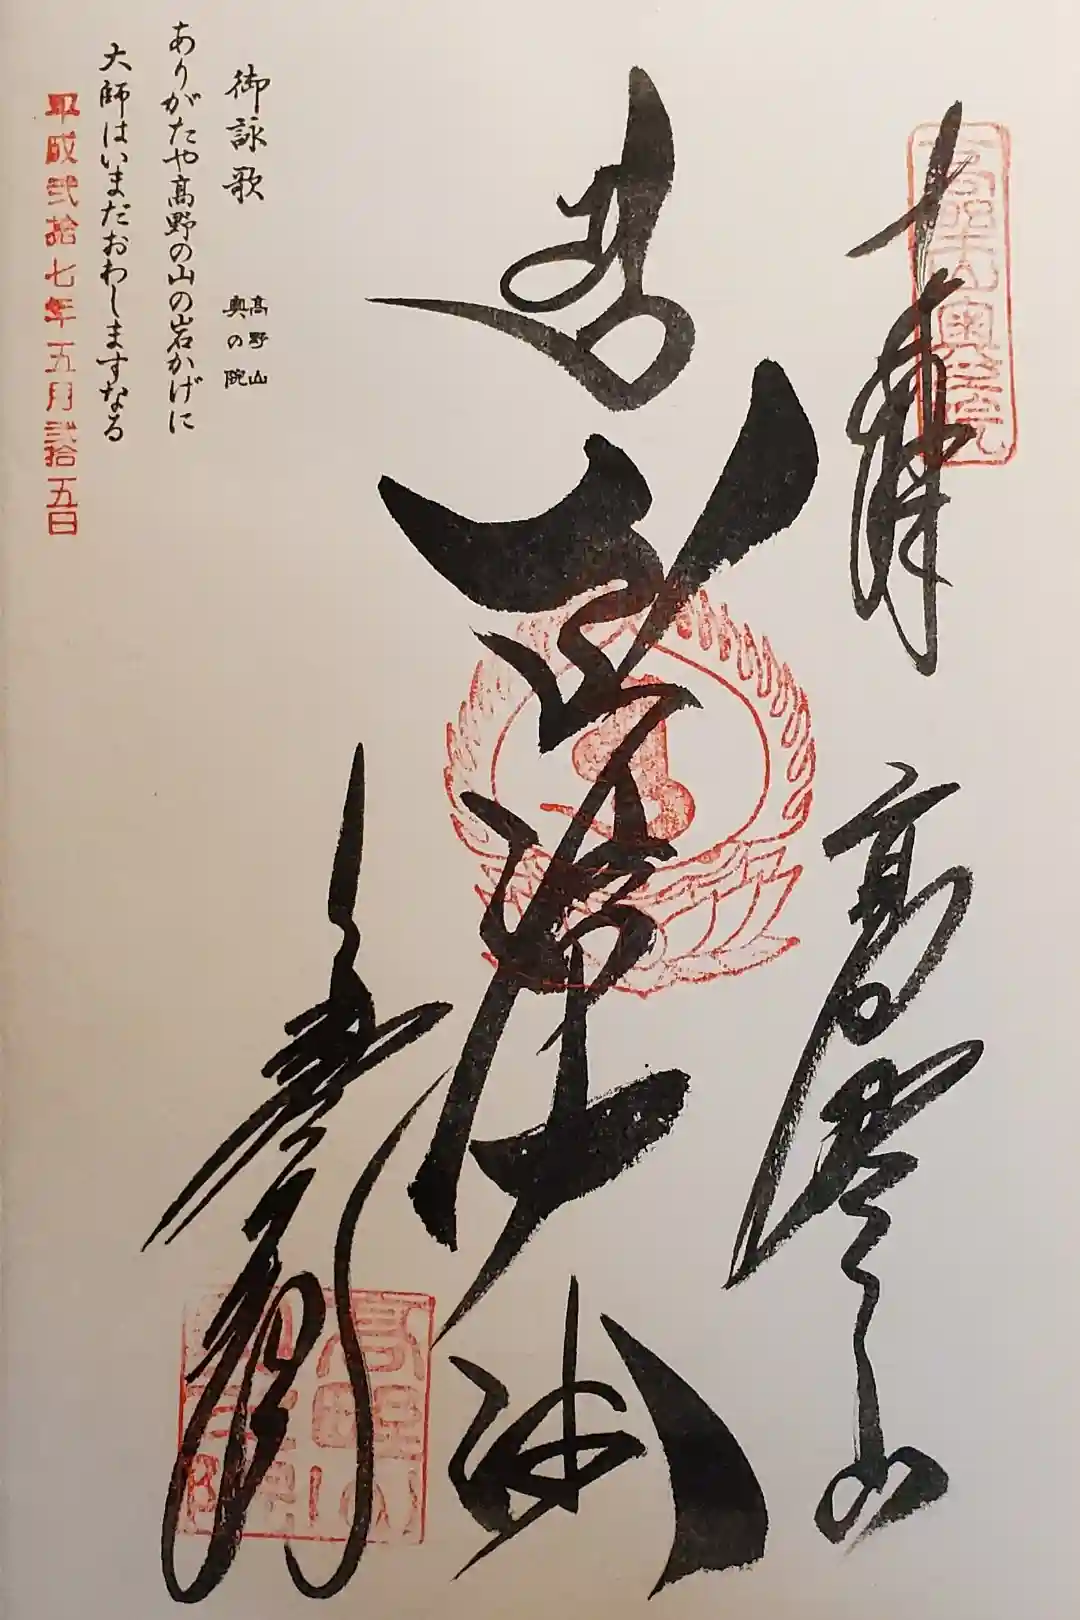 奉拝
高野山
高野山奥之院
弘法大師
奥之院
高野山奥之院
御詠歌
高野山
奥の院
ありがたや高野の山の岩かげに
大師はいまだおわしますなる
平成弐拾七年五月弐拾五日